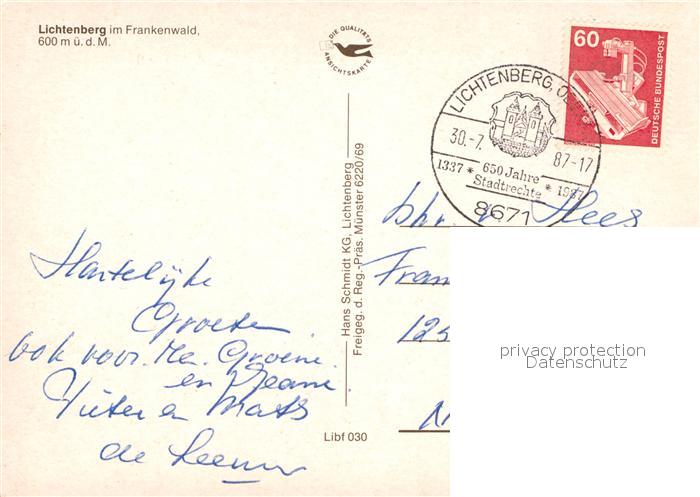 Lichtenberg im Frankenwald,
600 m ü. d. M.
DIE QUALITÄTS
ANSICHTSKARTE
60
DEUTSCHE BUNDESPOST
LICHTENBERG, O
30.-7.
87-17
1337 * 650 Jahre * 1987
Stadtrechte
8671
Hans Schmidt KG. Lichtenberg
Freigeg. d. Reg.-Präs. Münster 6220/69
Hartelijke
Groeten
ook voor
en
Pieter en Mats
de Leeuw
Hees
Fran
123
N
privacy protection
Datenschutz
Libf 030